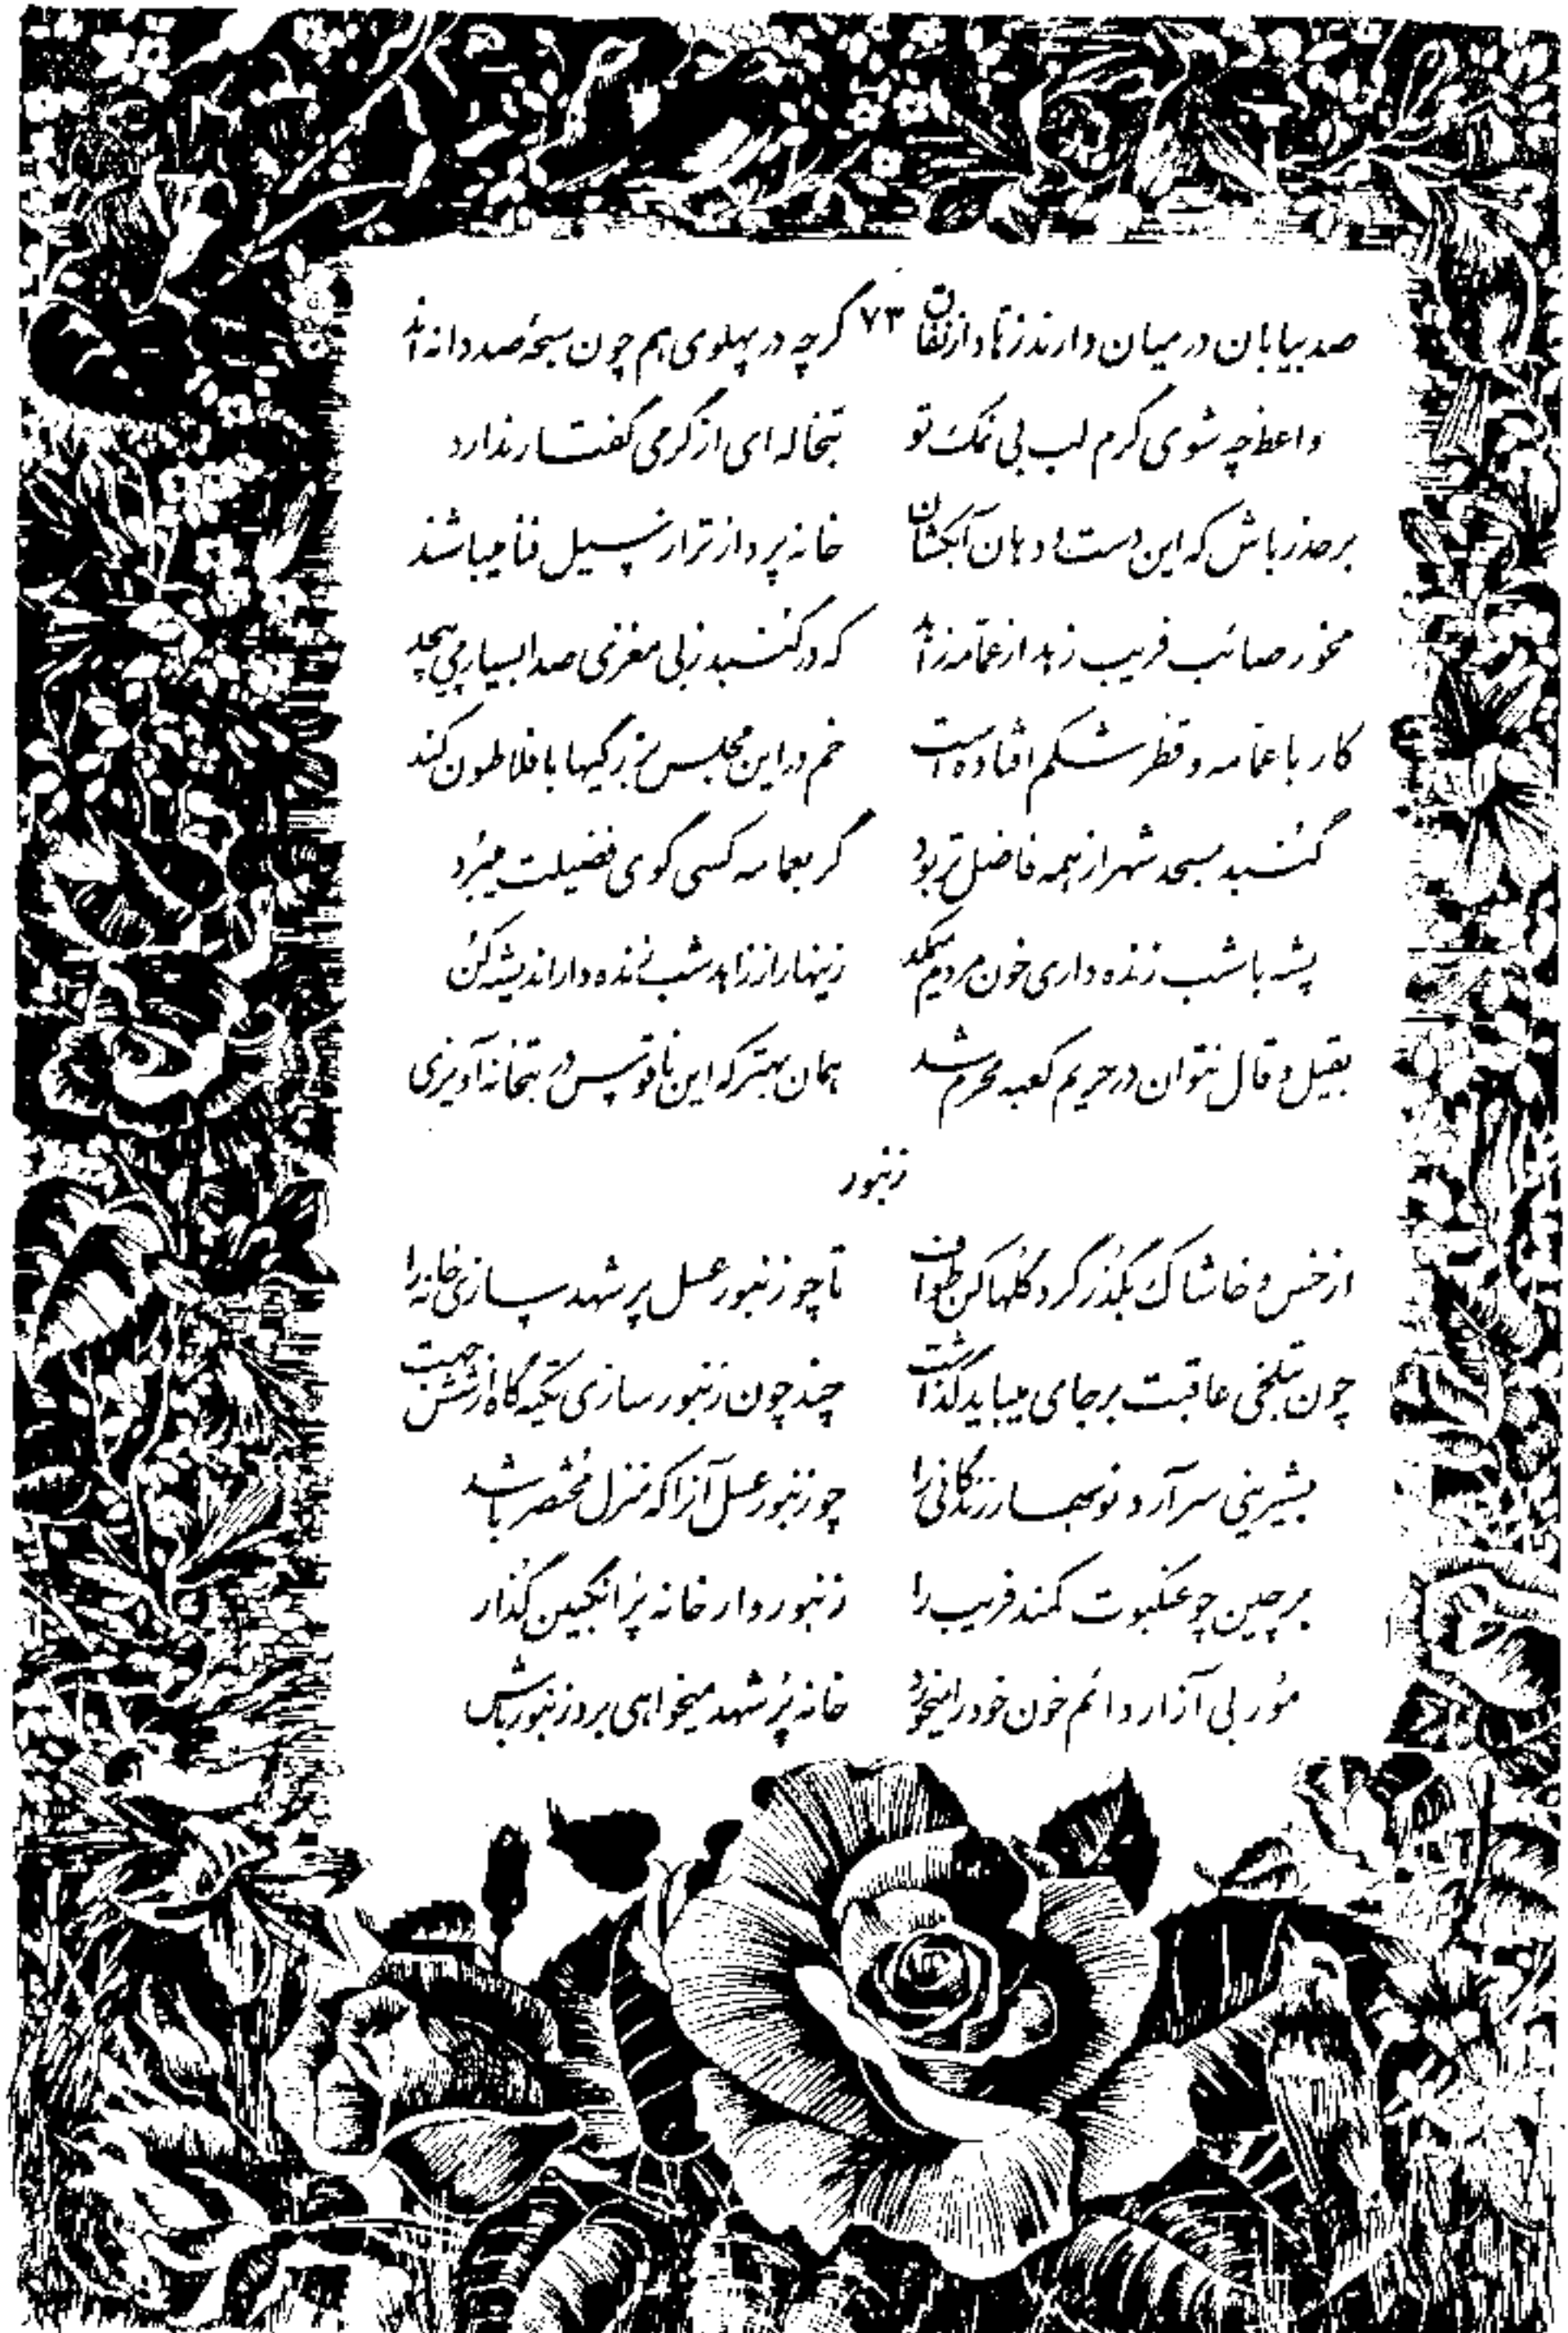 صد بیابان در میان دارند زهاد از نفاق ۷۳ گرچه در پهلوی هم چون سبحهٔ صد دانه‌اند
واعظ چه شوی گرم لب بی نمک تو تبخاله‌ای از گرمی گفتار ندارد
بر حذر باش که این دست و دهان آبکشان خانه پردازتر از سیل فنا میباشند
مخور صائب فریب زهد از عمامه زاهد که در گنبد ز بی مغزی صدا بسیار می‌پیچد
کار با عمامه و قطر شکم افتاده است خم در این مجلس بزرگیها با فلاطون کند
گنبد مسجد شهر از همه فاضل‌تر بود گر بعمامه کسی گوی فضیلت میبرد
پشه با شب زنده داری خون مردم میمکد زینهار از زاهد شب زنده دار اندیشه کن
بقیل و قال نتوان در حریم کعبه محرم شد همان بهتر که این ناقوس در بتخانه آویزی
زنبور
از خس و خاشاک بگذر گرد گلها کن طواف تا چو زنبور عسل پر شهد سازی خانه را
چون بتلخی عاقبت بر جای میباید گذاشت چند چون زنبور سازی تکیه گاه از شش جهت
بشیرینی سر آرد نوبهار زندگانی را چو زنبور عسل آنرا که منزل مختصر باشد
بر چین چو عنکبوت کمند فریب را زنبور وار خانه پُر انگبین گذار
مُور بی آزار دائم خون خود را میخورد خانه پُر شهد میخواهی برو زنبور باش